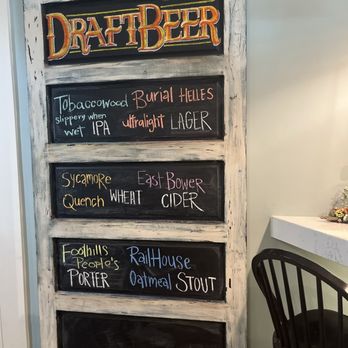 DRAFT BEER
Tobaccowood
slippery when
wet IPA
Burial HELLES
ultralight LAGER
Sycamore
Quench WHEAT
East Bower
CIDER
Foothills
People's
PORTER
RailHouse
Oatmeal STOUT